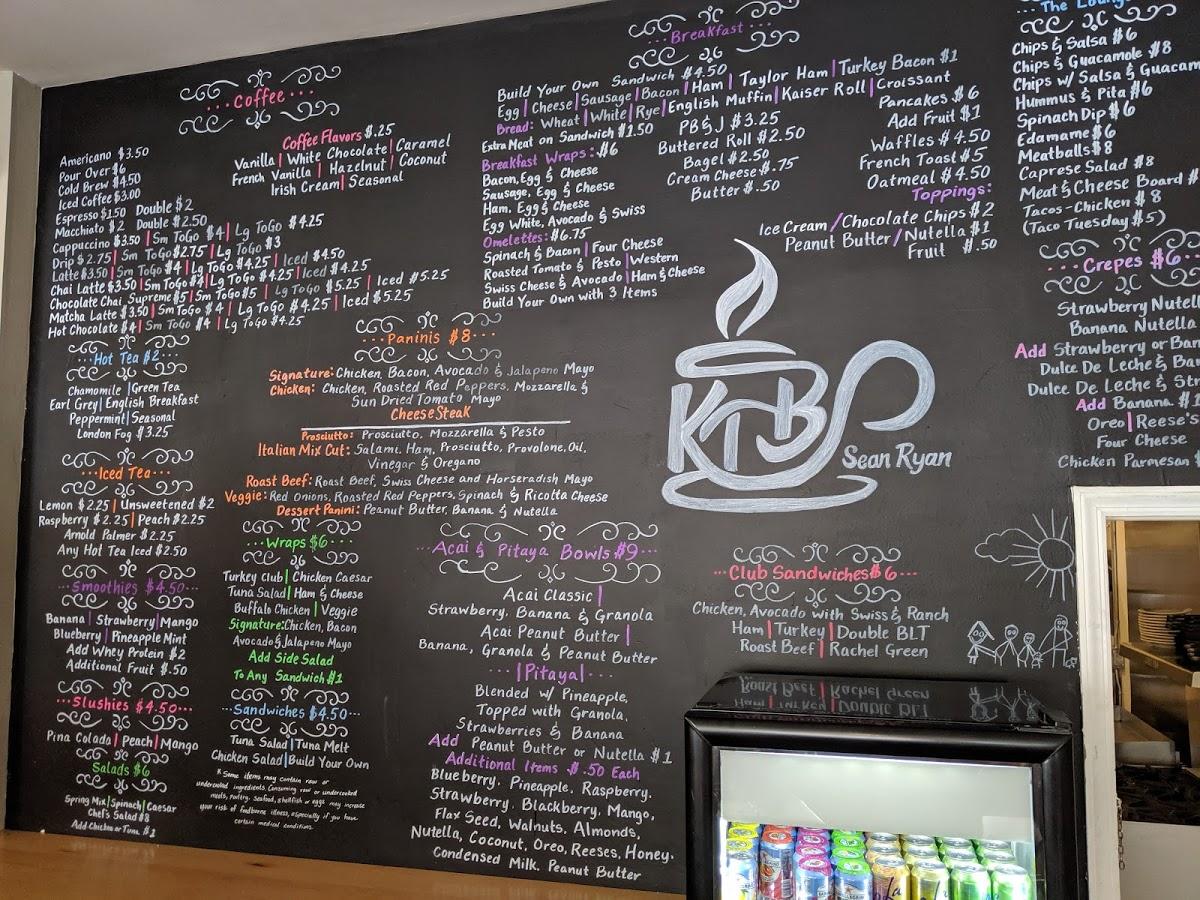 Coffee
Coffee Flavors $.25
Vanilla | White Chocolate | Caramel
French Vanilla | Hazelnut | Coconut
Irish Cream | Seasonal
Americano $3.50
Pour Over $6
Cold Brew $4.50
Iced Coffee $3.00
Espresso $1.50 Double $2
Macchiato $2 Double $2.50
Cappuccino $3.50 | Sm ToGo $4 | Lg ToGo $4.25
Drip $2.75 | Sm ToGo $2.75 | Lg ToGo $3
Latte $3.50 | Sm ToGo $4 | Lg ToGo $4.25 | Iced $4.50
Chai Latte $3.50 | Sm ToGo $4 | Lg ToGo $4.25 | Iced $4.25
Chocolate Chai Supreme $5 | Sm ToGo $5 | Lg ToGo $5.25 | Iced $5.25
Matcha Latte $3.50 | Sm ToGo $4 | Lg ToGo $4.25 | Iced $5.25
Hot Chocolate $4 | Sm ToGo $4 | Lg ToGo $4.25
Hot Tea $2
Chamomile | Green Tea
Earl Grey | English Breakfast
Peppermint | Seasonal
London Fog $3.25
Iced Tea
Lemon $2.25 | Unsweetened $2
Raspberry $2.25 | Peach $2.25
Arnold Palmer $2.25
Any Hot Tea Iced $2.50
Smoothies $4.50
Banana | Strawberry | Mango
Blueberry | Pineapple Mint
Add Whey Protein $2
Additional Fruit $.50
Slushies $4.50
Pina Colada | Peach | Mango
Salads $6
Spring Mix | Spinach | Caesar
Chef's Salad $8
Add Chicken or Tuna $1
Paninis $8
Signature: Chicken, Bacon, Avocado & Jalapeno Mayo
Chicken: Chicken, Roasted Red Peppers, Mozzarella &
Sun Dried Tomato Mayo
Cheese Steak
Prosciutto: Prosciutto, Mozzarella & Pesto
Italian Mix Cut: Salami, Ham, Prosciutto, Provolone, Oil,
Vinegar & Oregano
Roast Beef: Roast Beef, Swiss Cheese and Horseradish Mayo
Veggie: Red Onions, Roasted Red Peppers, Spinach & Ricotta Cheese
Dessert Panini: Peanut Butter, Banana & Nutella
Wraps $6
Turkey Club | Chicken Caesar
Tuna Salad | Ham & Cheese
Buffalo Chicken | Veggie
Signature: Chicken, Bacon
Avocado & Jalapeno Mayo
Add Side Salad
To Any Sandwich $1
Sandwiches $4.50
Tuna Salad | Tuna Melt
Chicken Salad | Build Your Own
* Some items may contain raw or
undercooked ingredients. Consuming raw or undercooked
meats, poultry, seafood, shellfish or eggs may increase
your risk of foodborne illness, especially if you have
certain medical conditions.
Acai & Pitaya Bowls $9
Acai Classic |
Strawberry, Banana & Granola
Acai Peanut Butter |
Banana, Granola & Peanut Butter
| Pitaya |
Blended w/ Pineapple,
Topped with Granola,
Strawberries & Banana
Add Peanut Butter or Nutella $1
Additional Items $.50 Each
Blueberry, Pineapple, Raspberry,
Strawberry, Blackberry, Mango,
Flax Seed, Walnuts, Almonds,
Nutella, Coconut, Oreo, Reeses, Honey,
Condensed Milk, Peanut Butter
Breakfast
Build Your Own Sandwich $4.50
Egg | Cheese | Sausage | Bacon | Ham | Taylor Ham | Turkey Bacon $1
Bread: Wheat | White | Rye | English Muffin | Kaiser Roll | Croissant
Extra Meat on Sandwich $1.50
Breakfast Wraps: $6
Bacon, Egg & Cheese
Sausage, Egg & Cheese
Ham, Egg & Cheese
Egg White, Avocado & Swiss
Omelettes: $6.75
Spinach & Bacon | Four Cheese
Roasted Tomato & Pesto | Western
Swiss Cheese & Avocado | Ham & Cheese
Build Your Own with 3 Items
PB & J $3.25
Buttered Roll $2.50
Bagel $2.50
Cream Cheese $.75
Butter $.50
Pancakes $6
Add Fruit $1
Waffles $4.50
French Toast $5
Oatmeal $4.50
Toppings:
Ice Cream / Chocolate Chips $2
Peanut Butter / Nutella $1
Fruit $.50
KTB
Sean Ryan
Club Sandwiches $6
Chicken, Avocado with Swiss & Ranch
Ham | Turkey | Double BLT
Roast Beef | Rachel Green
The Loung
Chips & Salsa $6
Chips & Guacamole $8
Chips w/ Salsa & Guacam
Hummus & Pita $6
Spinach Dip $6
Edamame $6
Meatballs $8
Caprese Salad $8
Meat & Cheese Board #
Tacos-Chicken $8
(Taco Tuesday $5)
Crepes $6
Strawberry Nutell
Banana Nutella
Add Strawberry or Ban
Dulce De Leche & Ban
Dulce De Leche & Str
Add Banana $1
Oreo | Reese's
Four Cheese
Chicken Parmesan